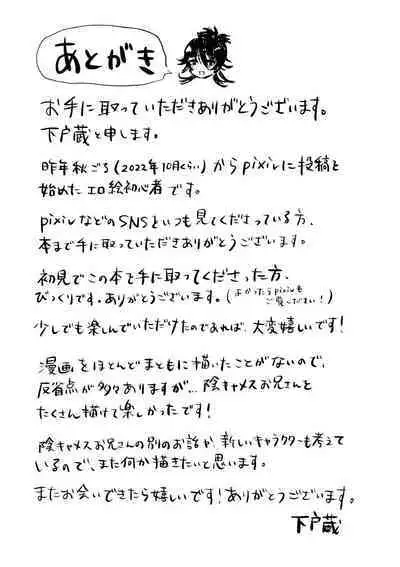 あとがき
お手に取っていただきありがとうございます。
下戸蔵と申します。
昨年秋ごろ(2022年10月くらい)からpixivに投稿を
始めたエロ絵初心者です。
pixivなどのSNSをいつも見てくださっている方、
本まで手に取っていただきありがとうございます。
初見でこの本を手に取ってくださった方、
びっくりです。ありがとうございます。(よかったらpixivも
ご覧ください!)
少しでも楽しんでいただけたのであれば、大変嬉しいです!
漫画をほとんどまともに描いたことがないので、
反省点が多々ありますが…陰キャメスお兄さんを
たくさん描けて楽しかったです!
陰キャメスお兄さんの別のお話や、新しいキャラクターも考えて
いるので、また何か描きたいと思います。
またお会いできたら嬉しいです!ありがとうございます。
下戸蔵